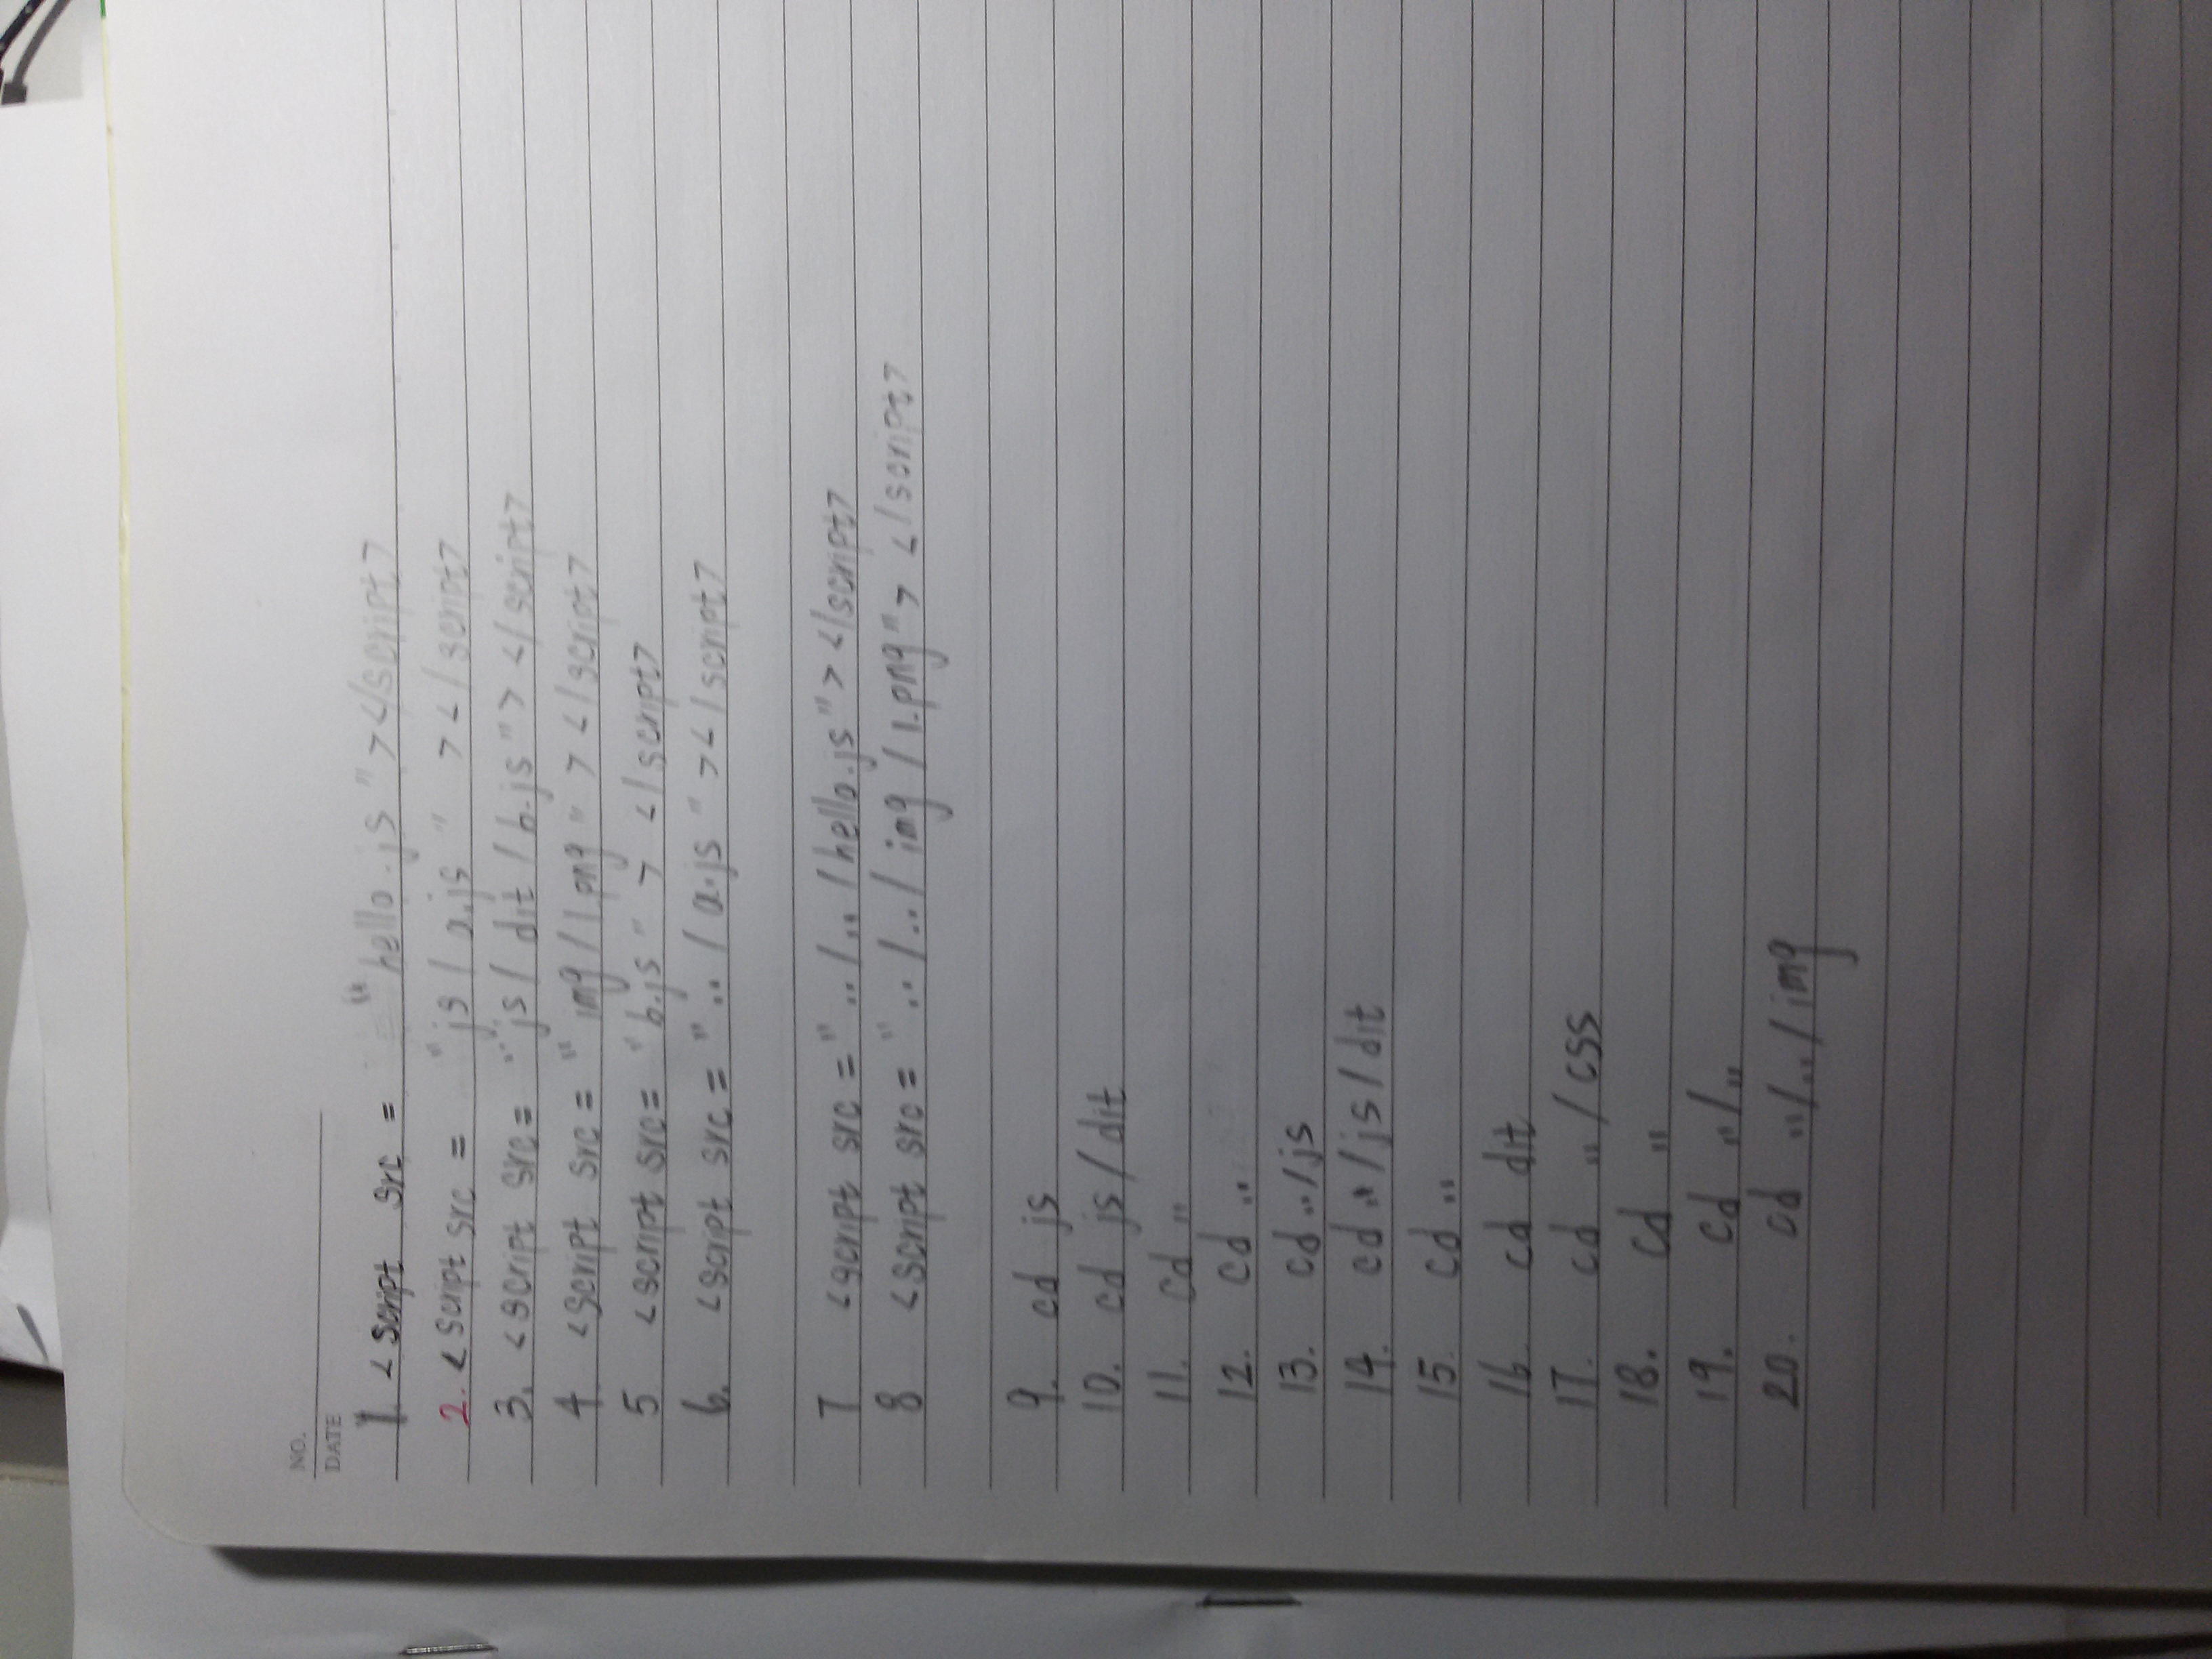 NO.
DATE
1. <script src = "hello.js"></script>
2. <script src = "js/a.js"></script>
3. <script src = "js/dit/b.js"></script>
4 <script src = "img/1.png"></script>
5 <script src = "b.js"></script>
6. <script src = "../a.js"></script>
7 <script src = "../../hello.js"></script>
8 <script src = "../../img/1.png"></script>
9. cd js
10. cd js/dit
11. cd ..
12. cd ..
13. cd ../js
14. cd ../js/dit
15. cd ..
16. cd dit
17. cd ../css
18. cd ..
19. cd ../..
20. cd ../../img